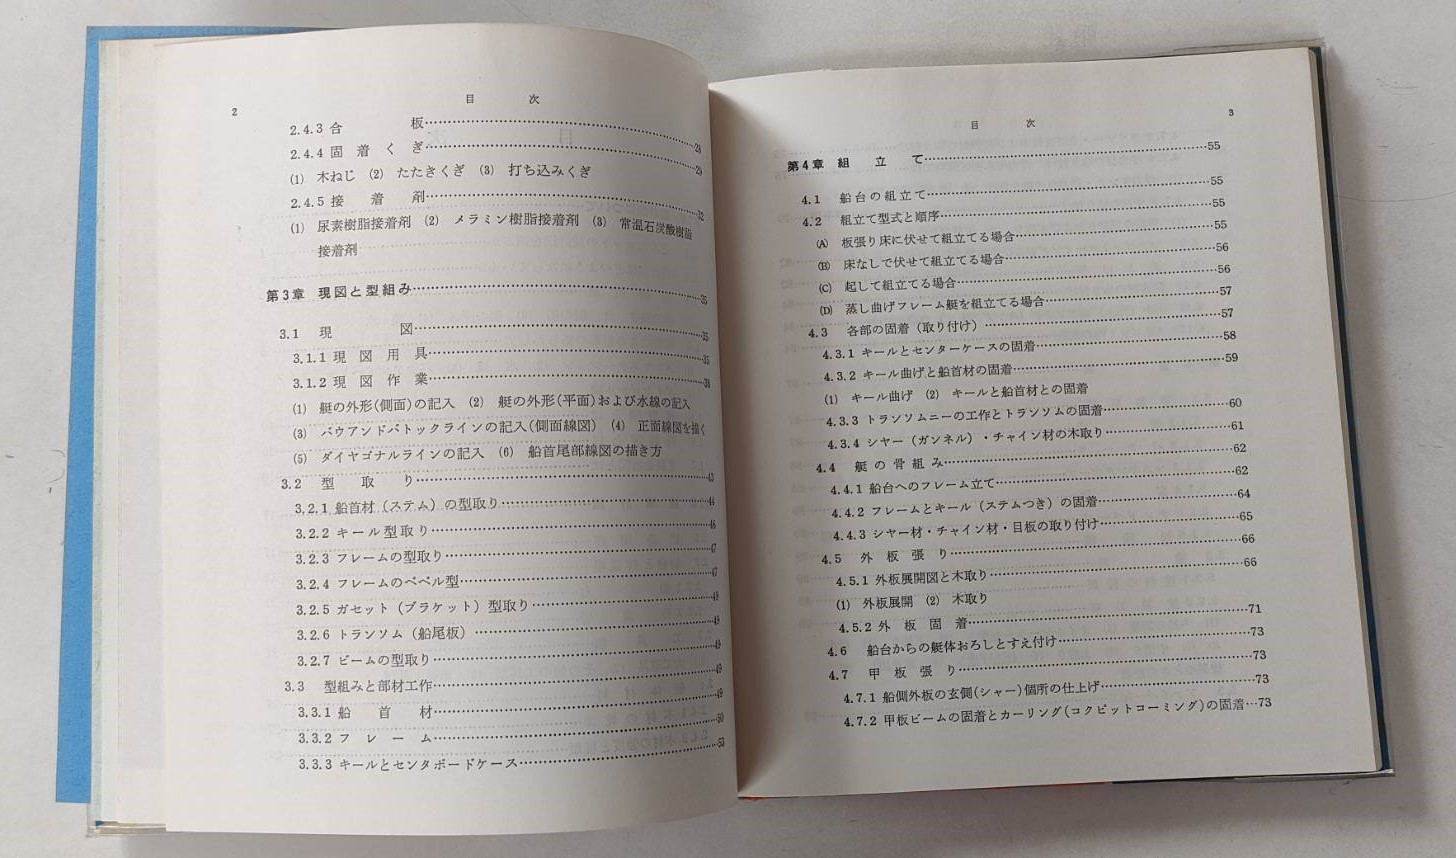 2
目次
2.4.3 合板……28
2.4.4 固着くぎ……29
(1) 木ねじ (2) たたきくぎ (3) 打ち込みくぎ
2.4.5 接着剤……32
(1) 尿素樹脂接着剤 (2) メラミン樹脂接着剤 (3) 常温石炭酸樹脂
接着剤
第3章 現図と型組み……35
3.1 現図……35
3.1.1 現図用具……35
3.1.2 現図作業……38
(1) 艇の外形(側面)の記入 (2) 艇の外形(平面)および水線の記入
(3) バウアンドバトックラインの記入(側面線図) (4) 正面線図を描く
(5) ダイヤゴナルラインの記入 (6) 船首尾部線図の描き方
3.2 型取り……43
3.2.1 船首材(ステム)の型取り……44
3.2.2 キール型取り……46
3.2.3 フレームの型取り……47
3.2.4 フレームのベベル型……47
3.2.5 ガセット(ブラケット)型取り……48
3.2.6 トランソム(船尾板)……48
3.2.7 ビームの型取り……49
3.3 型組みと部材工作……49
3.3.1 船首材……49
3.3.2 フレーム……50
3.3.3 キールとセンタボードケース……53
目次
3
第4章 組立て……55
4.1 船台の組立て……55
4.2 組立て型式と順序……55
(A) 板張り床に伏せて組立てる場合……55
(B) 床なしで伏せて組立てる場合……56
(C) 起して組立てる場合……56
(D) 蒸し曲げフレーム艇を組立てる場合……57
4.3 各部の固着(取り付け)……57
4.3.1 キールとセンターケースの固着……58
4.3.2 キール曲げと船首材の固着……59
(1) キール曲げ (2) キールと船首材との固着
4.3.3 トランソムニーの工作とトランソムの固着……60
4.3.4 シヤー(ガンネル)・チャイン材の木取り……61
4.4 艇の骨組み……62
4.4.1 船台へのフレーム立て……62
4.4.2 フレームとキール(ステムつき)の固着……64
4.4.3 シヤー材・チャイン材・目板の取り付け……65
4.5 外板張り……66
4.5.1 外板展開図と木取り……66
(1) 外板展開 (2) 木取り
4.5.2 外板固着……71
4.6 船台からの艇体おろしとすえ付け……73
4.7 甲板張り……73
4.7.1 船側外板の玄側(シャー)個所の仕上げ……73
4.7.2 甲板ビームの固着とカーリング(コクピットコーミング)の固着…73